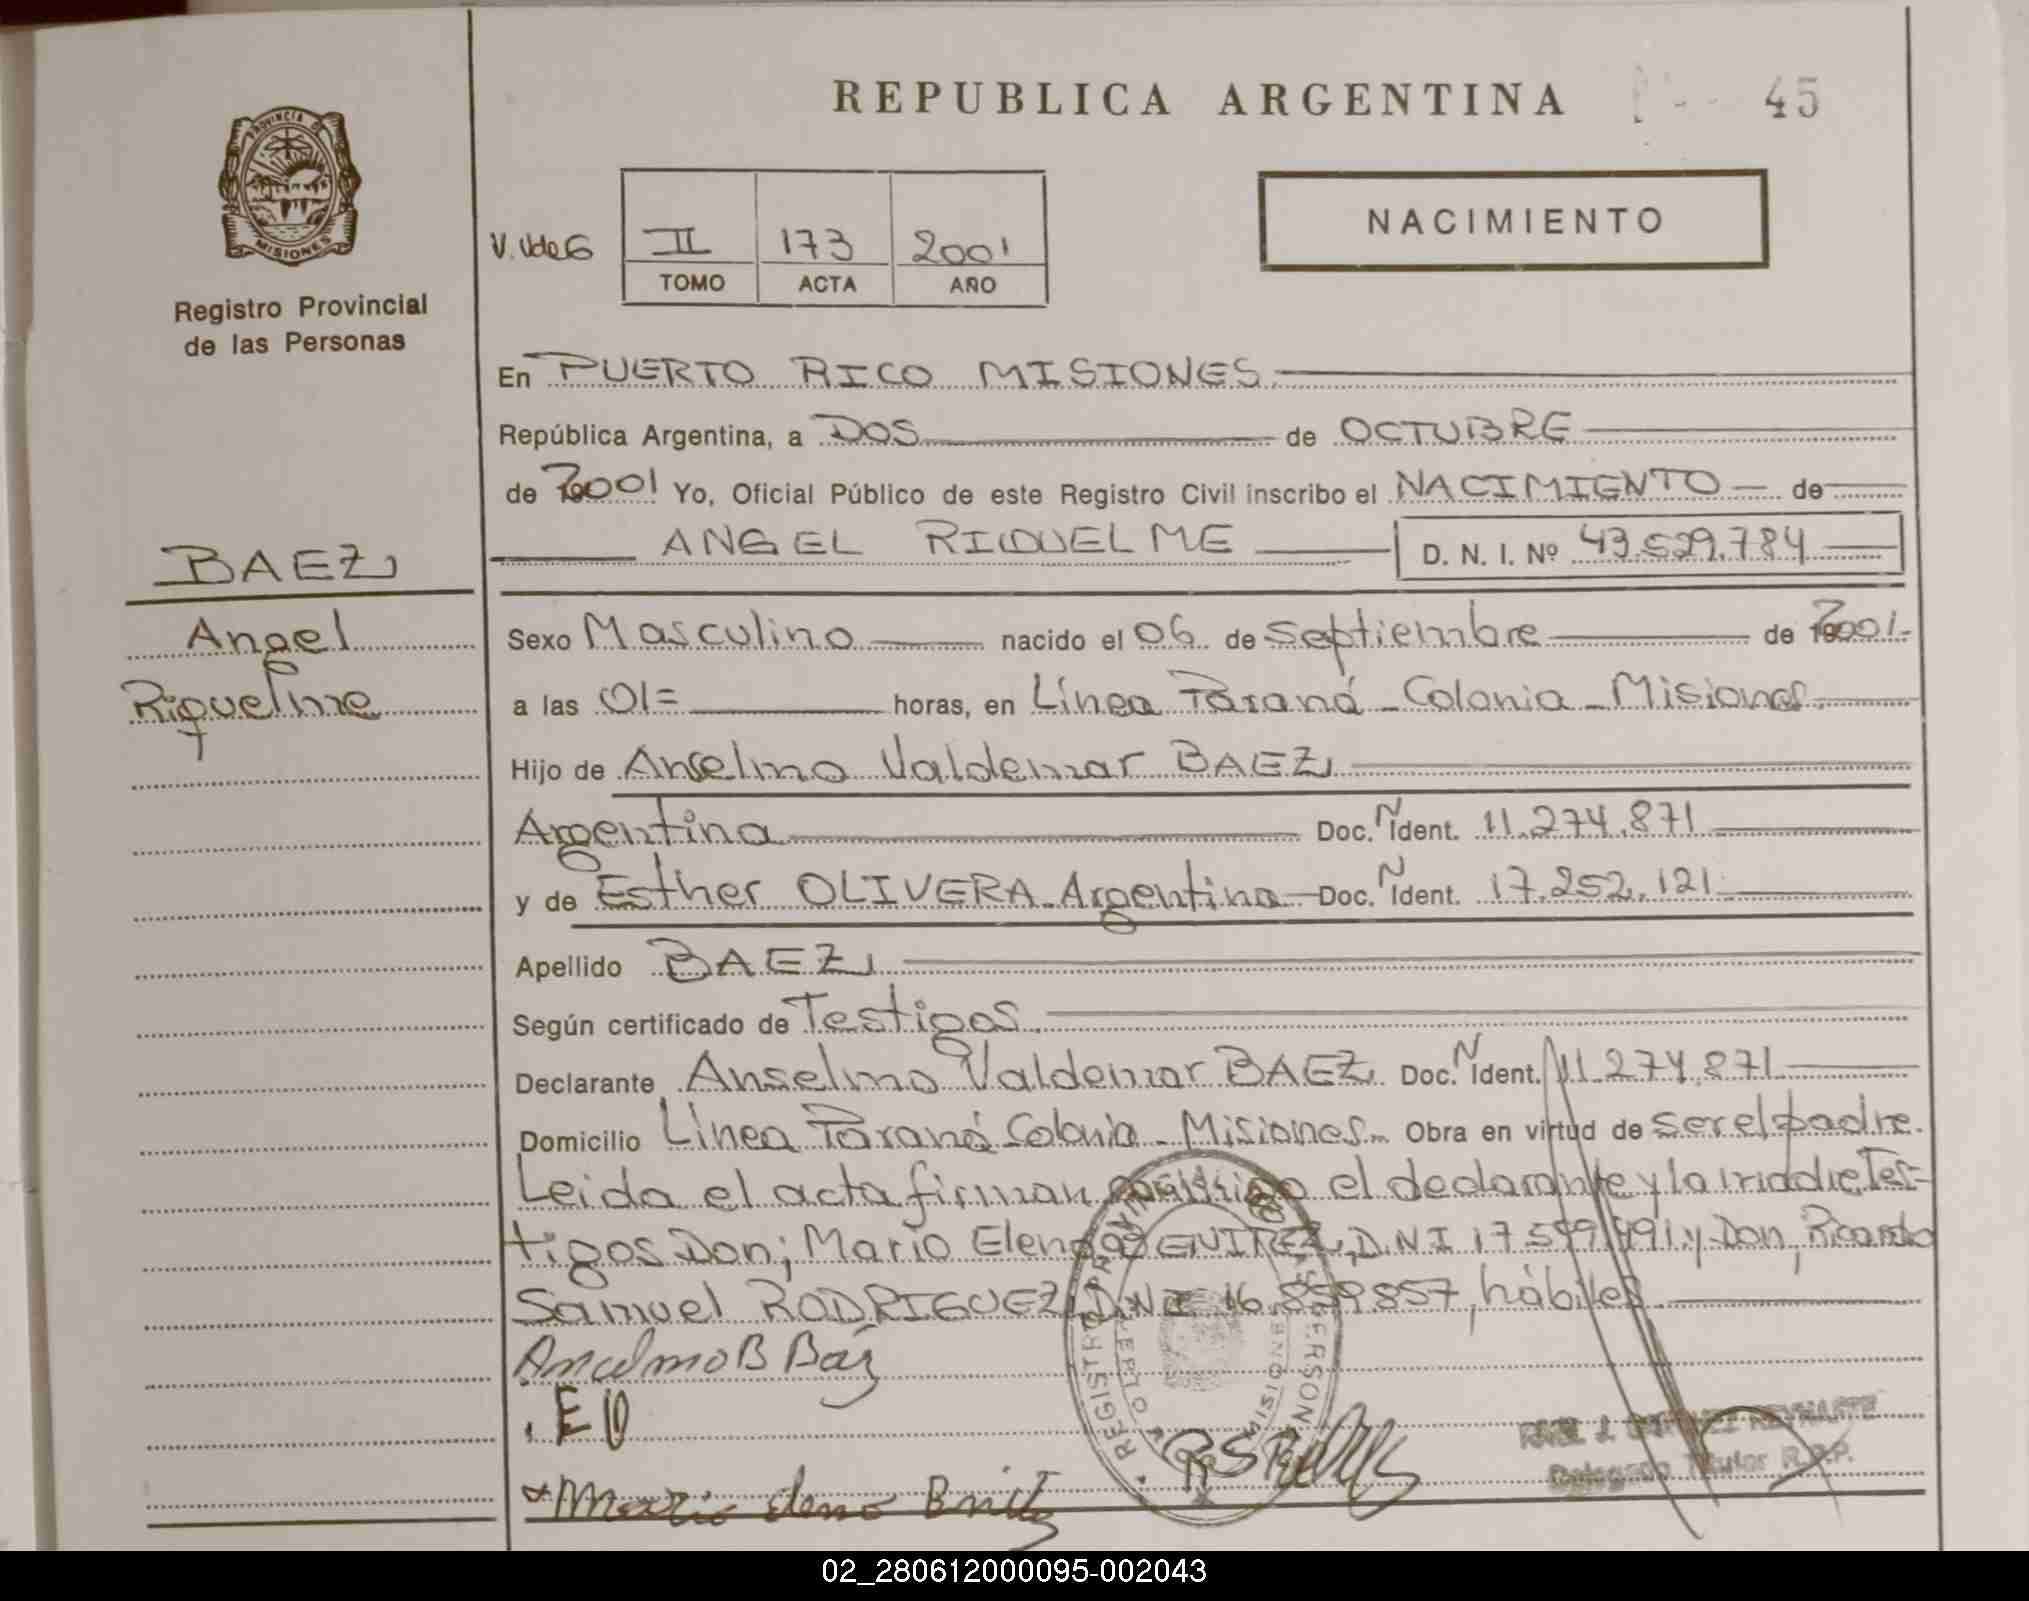 REPUBLICA ARGENTINA
45
PROVINCIA DE
MISIONES
Registro Provincial
de las Personas
NACIMIENTO
V. Vde G
II 173 2001
TOMO ACTA AÑO
En PUERTO RICO MISIONES
República Argentina, a DOS de OCTUBRE
de 2001 Yo, Oficial Público de este Registro Civil inscribo el NACIMIENTO de
ANGEL RIQUELME D. N. I. Nº 43.529.784
BAEZ
Angel
Riquelme
Sexo Masculino nacido el 06 de Septiembre de 2001
a las 01= horas, en Línea Paraná - Colonia - Misiones
Hijo de Anselmo Valdemar BAEZ
Argentina Doc. N Ident. 11.274.871
y de Esther OLIVERA Argentina Doc. N Ident. 17.252.121
Apellido BAEZ
Según certificado de Testigos
Declarante Anselmo Valdemar BAEZ Doc. N Ident. 11.274.871
Domicilio Línea Paraná Colonia - Misiones Obra en virtud de ser el padre
Leida el acta firman conmigo el declarante y la madre Tes-
tigos Don; Mario Eleno D.N.I 17.599.491 y Don, Ricardo
Samuel RODRIGUEZ, D.N.I 16.859.857, hábiles
Anselmo B Báz
E O
Mario eleno
REGISTRO PROVINCIAL DE LAS PERSONAS
MISIONES
Delegado Titular R.P.P.
02_280612000095-002043